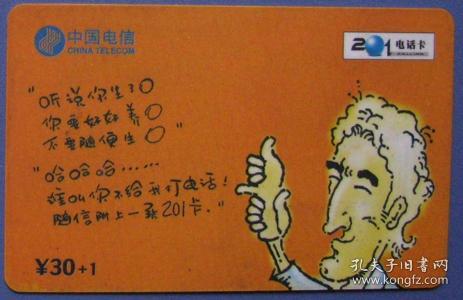 中国电信
CHINA TELECOM
201电话卡
"听说你生了〇
你要好好养〇
不要随便生〇"
"哈哈哈……
谁叫你不给我打电话！
随信附上一张201卡."
¥30+1
孔夫子旧书网
kongfz.com